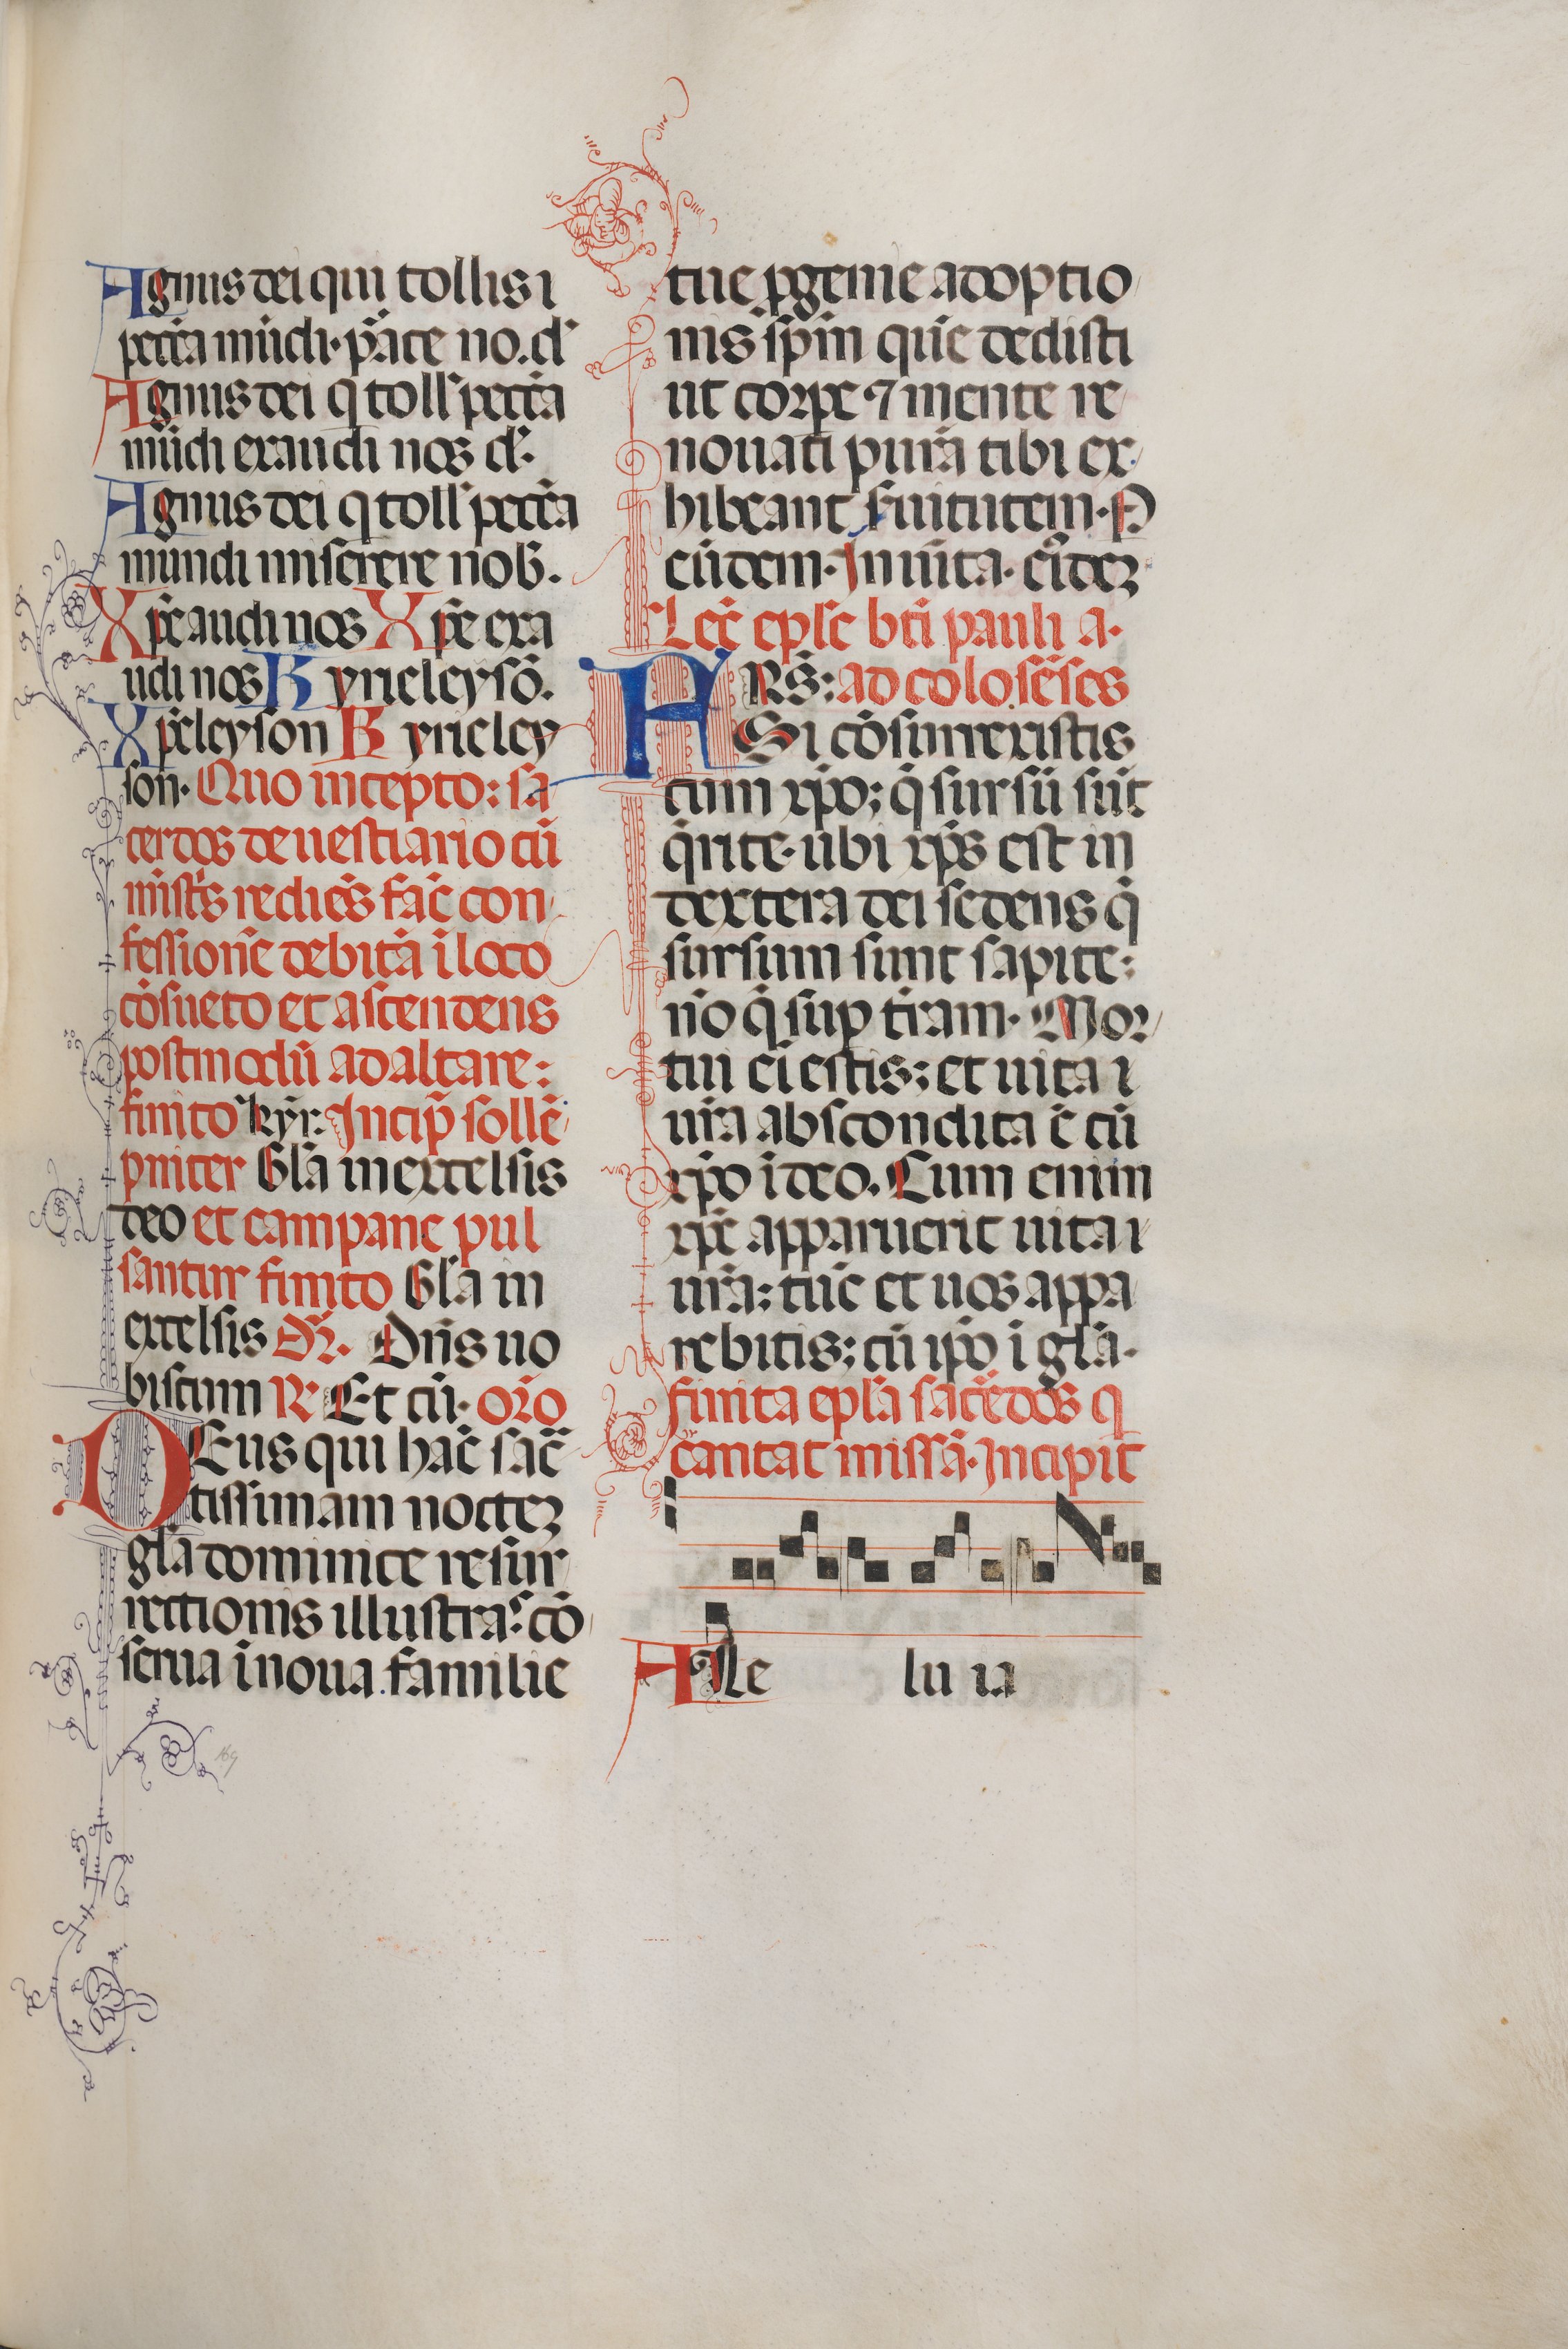 Agnus dei qui tollis
pccā mūdi· ꝑce no. dꝰ
Agnus dei q toll̕ pccā
mūdi exaudi nos d.
Agnus dei q toll̕ pccā
mundi miserere nob̄.
Xp̄e audi nos Xp̄e exa
udi nos Kyrieleysō.
Xp̄eleyson Kyrieley
son· Quo incepto: sa
cerdos de uestiario cū
mīst̄s rediēs fac̄ con
fessionē debitā ī loco
cōsueto et ascendens
postmodū ad altare:
finito kyr̄: Incip̄ sollē
pniter Gl̄a in excelsis
deo et campane pul
santur finito Gl̄a in
excelsis Dn̄s uo
biscum R Et cū· or̄o
DEus qui hāc sac̄
tissimam noctez
gl̄a dominice resur
rectionis illustras: cō
serua ī noua familie
tue ꝓgenie adoptio
nis sp̄m quē dedisti
ut corꝑe ⁊ mente re
nouati purā tibi ex
hibeant s̄uitutem· P
eūdem· In unita· eiꝰdez
Lec̄ ep̄le bt̄i pauli a·
FRS̄: ad colosēses
Si cōsurrexistis
cum xp̄o; q̄ sursū sūt
q̄rite· ubi xp̄s est in
dextera dei sedens q̄
sursum sunt sapite:
nō q̄ suꝑ t̄ram· Mor
tui ei estis; et uita
ur̄a abscondita ē cū
xp̄o ī deo. Cum enim
xp̄c apparuerit uita
ur̄a; tūc et uos appa
rebitis; cū ip̄o ī gl̄a·
finita epl̄a sac̄dos
cantat missā· Incipit
Alle lu ia
169